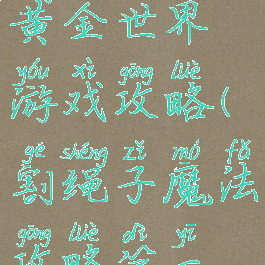 黄金世界
yóu xì gōng lüè
游戏攻略(
gē shéng zǐ mó fǎ
割绳子魔法
gōng lüè dì yī
攻略第一